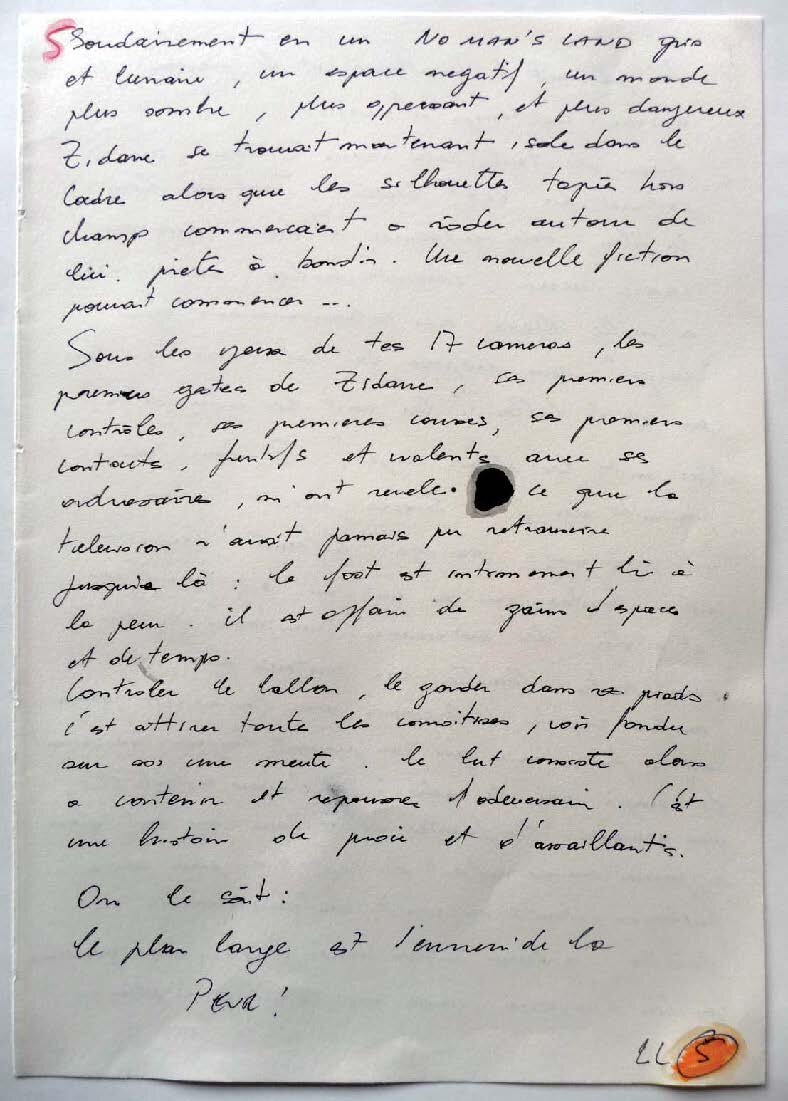 5 Soudainement en un NO MAN'S LAND gris
et lunaire, un espace negatif, un monde
plus sombre, plus oppressant, et plus dangereux
Zidane se trouvait maintenant isole dans le
Cadre alors que les silhouettes tapies hors
champs commencaient a rôder autour de
lui. pretes à bondir. Une nouvelle fiction
pouvait commencer ...
Sous les yeux de tes 17 cameras, les
premiers gestes de Zidane, ses premiers
contrôles, ses premieres courses, ses premiers
contacts, furtifs et violents avec ses
adversaires, m'ont revele ce que la
television n'avait jamais pu retransmettre
jusque là : le foot est intimement lié à
la peur. il est affaire de gains d'espaces
et de temps.
Controler le ballon, le garder dans ses pieds
c'est attirer toute les convoitises, voir fondre
sur soi une meute. le but consiste alors
a contenir et repousser l'adversaire. C'est
une histoire de proie et d'assaillants.
On le sait :
le plan large est l'ennemi de la
PEUR !
LL 5